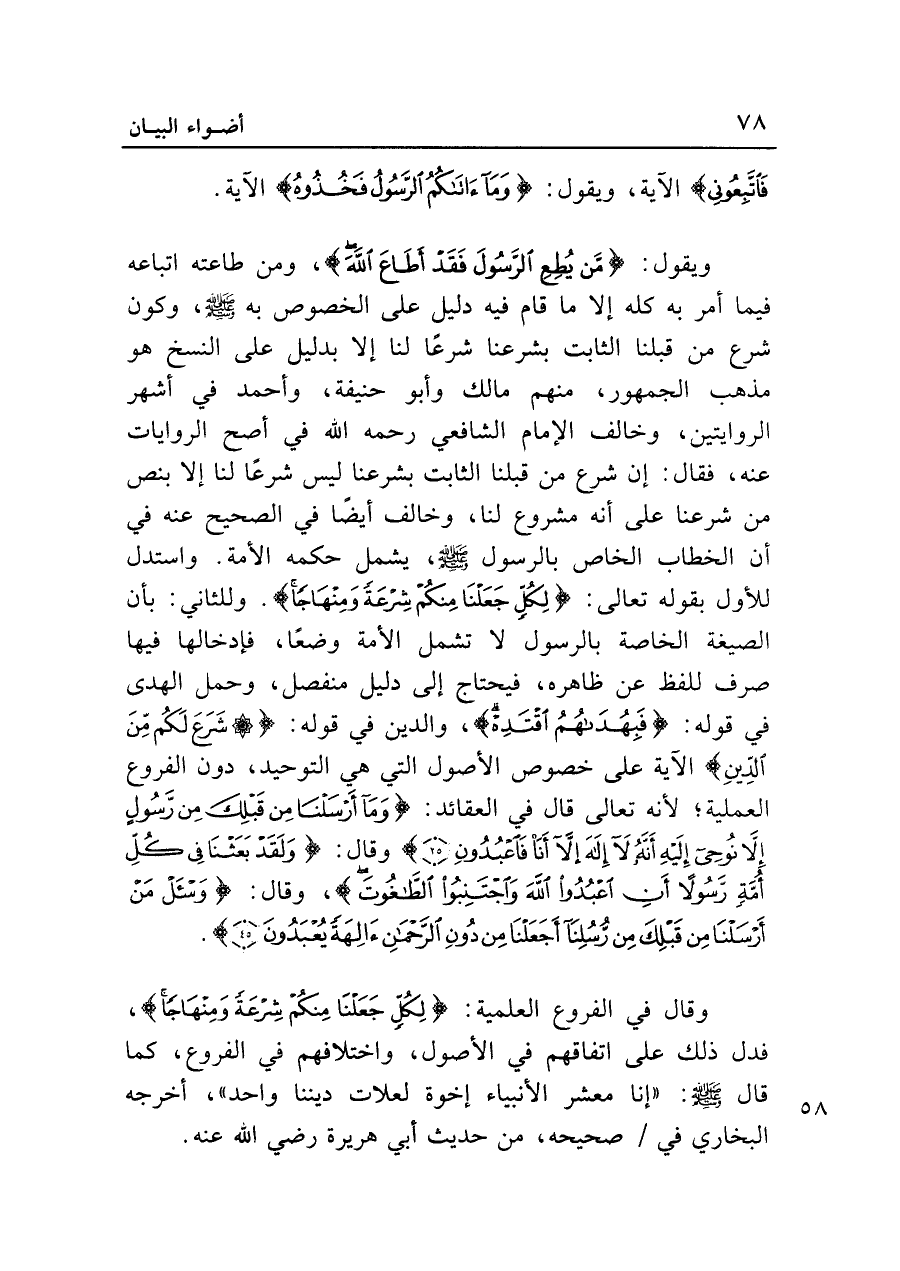 ٧٨ أضواء البيان
فَٱتَّبِعُونِى﴾ الآية، ويقول: ﴿وَمَآ ءَاتَىٰكُمُ ٱلرَّسُولُ فَخُـذُوهُ﴾ الآية.
ويقول: ﴿مَّن يُطِعِ ٱلرَّسُولَ فَقَدْ أَطَاعَ ٱللَّهَۖ﴾، ومن طاعته اتباعه
فيما أمر به كله إلا ما قام فيه دليل على الخصوص به ﷺ، وكون
شرع من قبلنا الثابت بشرعنا شرعًا لنا إلا بدليل على النسخ هو
مذهب الجمهور، منهم مالك وأبو حنيفة، وأحمد في أشهر
الروايتين، وخالف الإمام الشافعي رحمه الله في أصح الروايات
عنه، فقال: إن شرع من قبلنا الثابت بشرعنا ليس شرعًا لنا إلا بنص
من شرعنا على أنه مشروع لنا، وخالف أيضًا في الصحيح عنه في
أن الخطاب الخاص بالرسول ﷺ، يشمل حكمه الأمة. واستدل
للأول بقوله تعالى: ﴿لِكُلٍّ جَعَلْنَا مِنكُمْ شِرْعَةً وَمِنْهَاجًاۚ﴾. وللثاني: بأن
الصيغة الخاصة بالرسول لا تشمل الأمة وضعًا، فإدخالها فيها
صرف للفظ عن ظاهره، فيحتاج إلى دليل منفصل، وحمل الهدى
في قوله: ﴿فَبِهُدَىٰهُمُ ٱقْتَدِهْۗ﴾، والدين في قوله: ﴿۞ شَرَعَ لَكُم مِّنَ
ٱلدِّينِ﴾ الآية على خصوص الأصول التي هي التوحيد، دون الفروع
العملية؛ لأنه تعالى قال في العقائد: ﴿وَمَآ أَرْسَلْنَا مِن قَبْلِكَ مِن رَّسُولٍ
إِلَّا نُوحِىٓ إِلَيْهِ أَنَّهُۥ لَآ إِلَٰهَ إِلَّآ أَنَا۠ فَٱعْبُدُونِ ٢٥﴾ وقال: ﴿وَلَقَدْ بَعَثْنَا فِى كُلِّ
أُمَّةٍ رَّسُولًا أَنِ ٱعْبُدُوا۟ ٱللَّهَ وَٱجْتَنِبُوا۟ ٱلطَّٰغُوتَۖ﴾، وقال: ﴿وَسْـَٔلْ مَنْ
أَرْسَلْنَا مِن قَبْلِكَ مِن رُّسُلِنَآ أَجَعَلْنَا مِن دُونِ ٱلرَّحْمَٰنِ ءَالِهَةً يُعْبَدُونَ ٤٥﴾.
وقال في الفروع العلمية: ﴿لِكُلٍّ جَعَلْنَا مِنكُمْ شِرْعَةً وَمِنْهَاجًاۚ﴾،
فدل ذلك على اتفاقهم في الأصول، واختلافهم في الفروع، كما
قال ﷺ: «إنا معشر الأنبياء إخوة لعلات ديننا واحد»، أخرجه
٥٨
البخاري في / صحيحه، من حديث أبي هريرة رضي الله عنه.